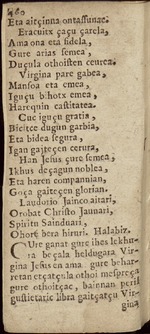 160
Eta aitçinna ontassunac.
Eracutx çaçu çarela,
Ama ona eta fidela,
Gure arias semea,
Duçula othoisten ceurea.
Virgina pare gabea,
Mansoa eta emea,
Iguçu bihotx emea,
Harequin castitatea.
Cuc iguçu gratia,
Bicitce dugun garbia,
Eta bidea segura,
Igan gaitecen cerura,
Han Jesus çure semea,
Ikhus deçagun noblea,
Eta haren compannian,
Goça gaitecen glorian.
Laudorio Jainco aitari,
Orobat Christo Jaunari,
Spiritu Sainduari,
Ohore bera hiruri. Halabiz.
CUre ganat gure ihes lekhu-
ra beçala heldugara Vir-
gina Jesus en ama gure behar-
retan etçatçula othoi mespreça
gure othoitçac, bainnan peril
gustietaric libra gaitçatçu Vir-
gina